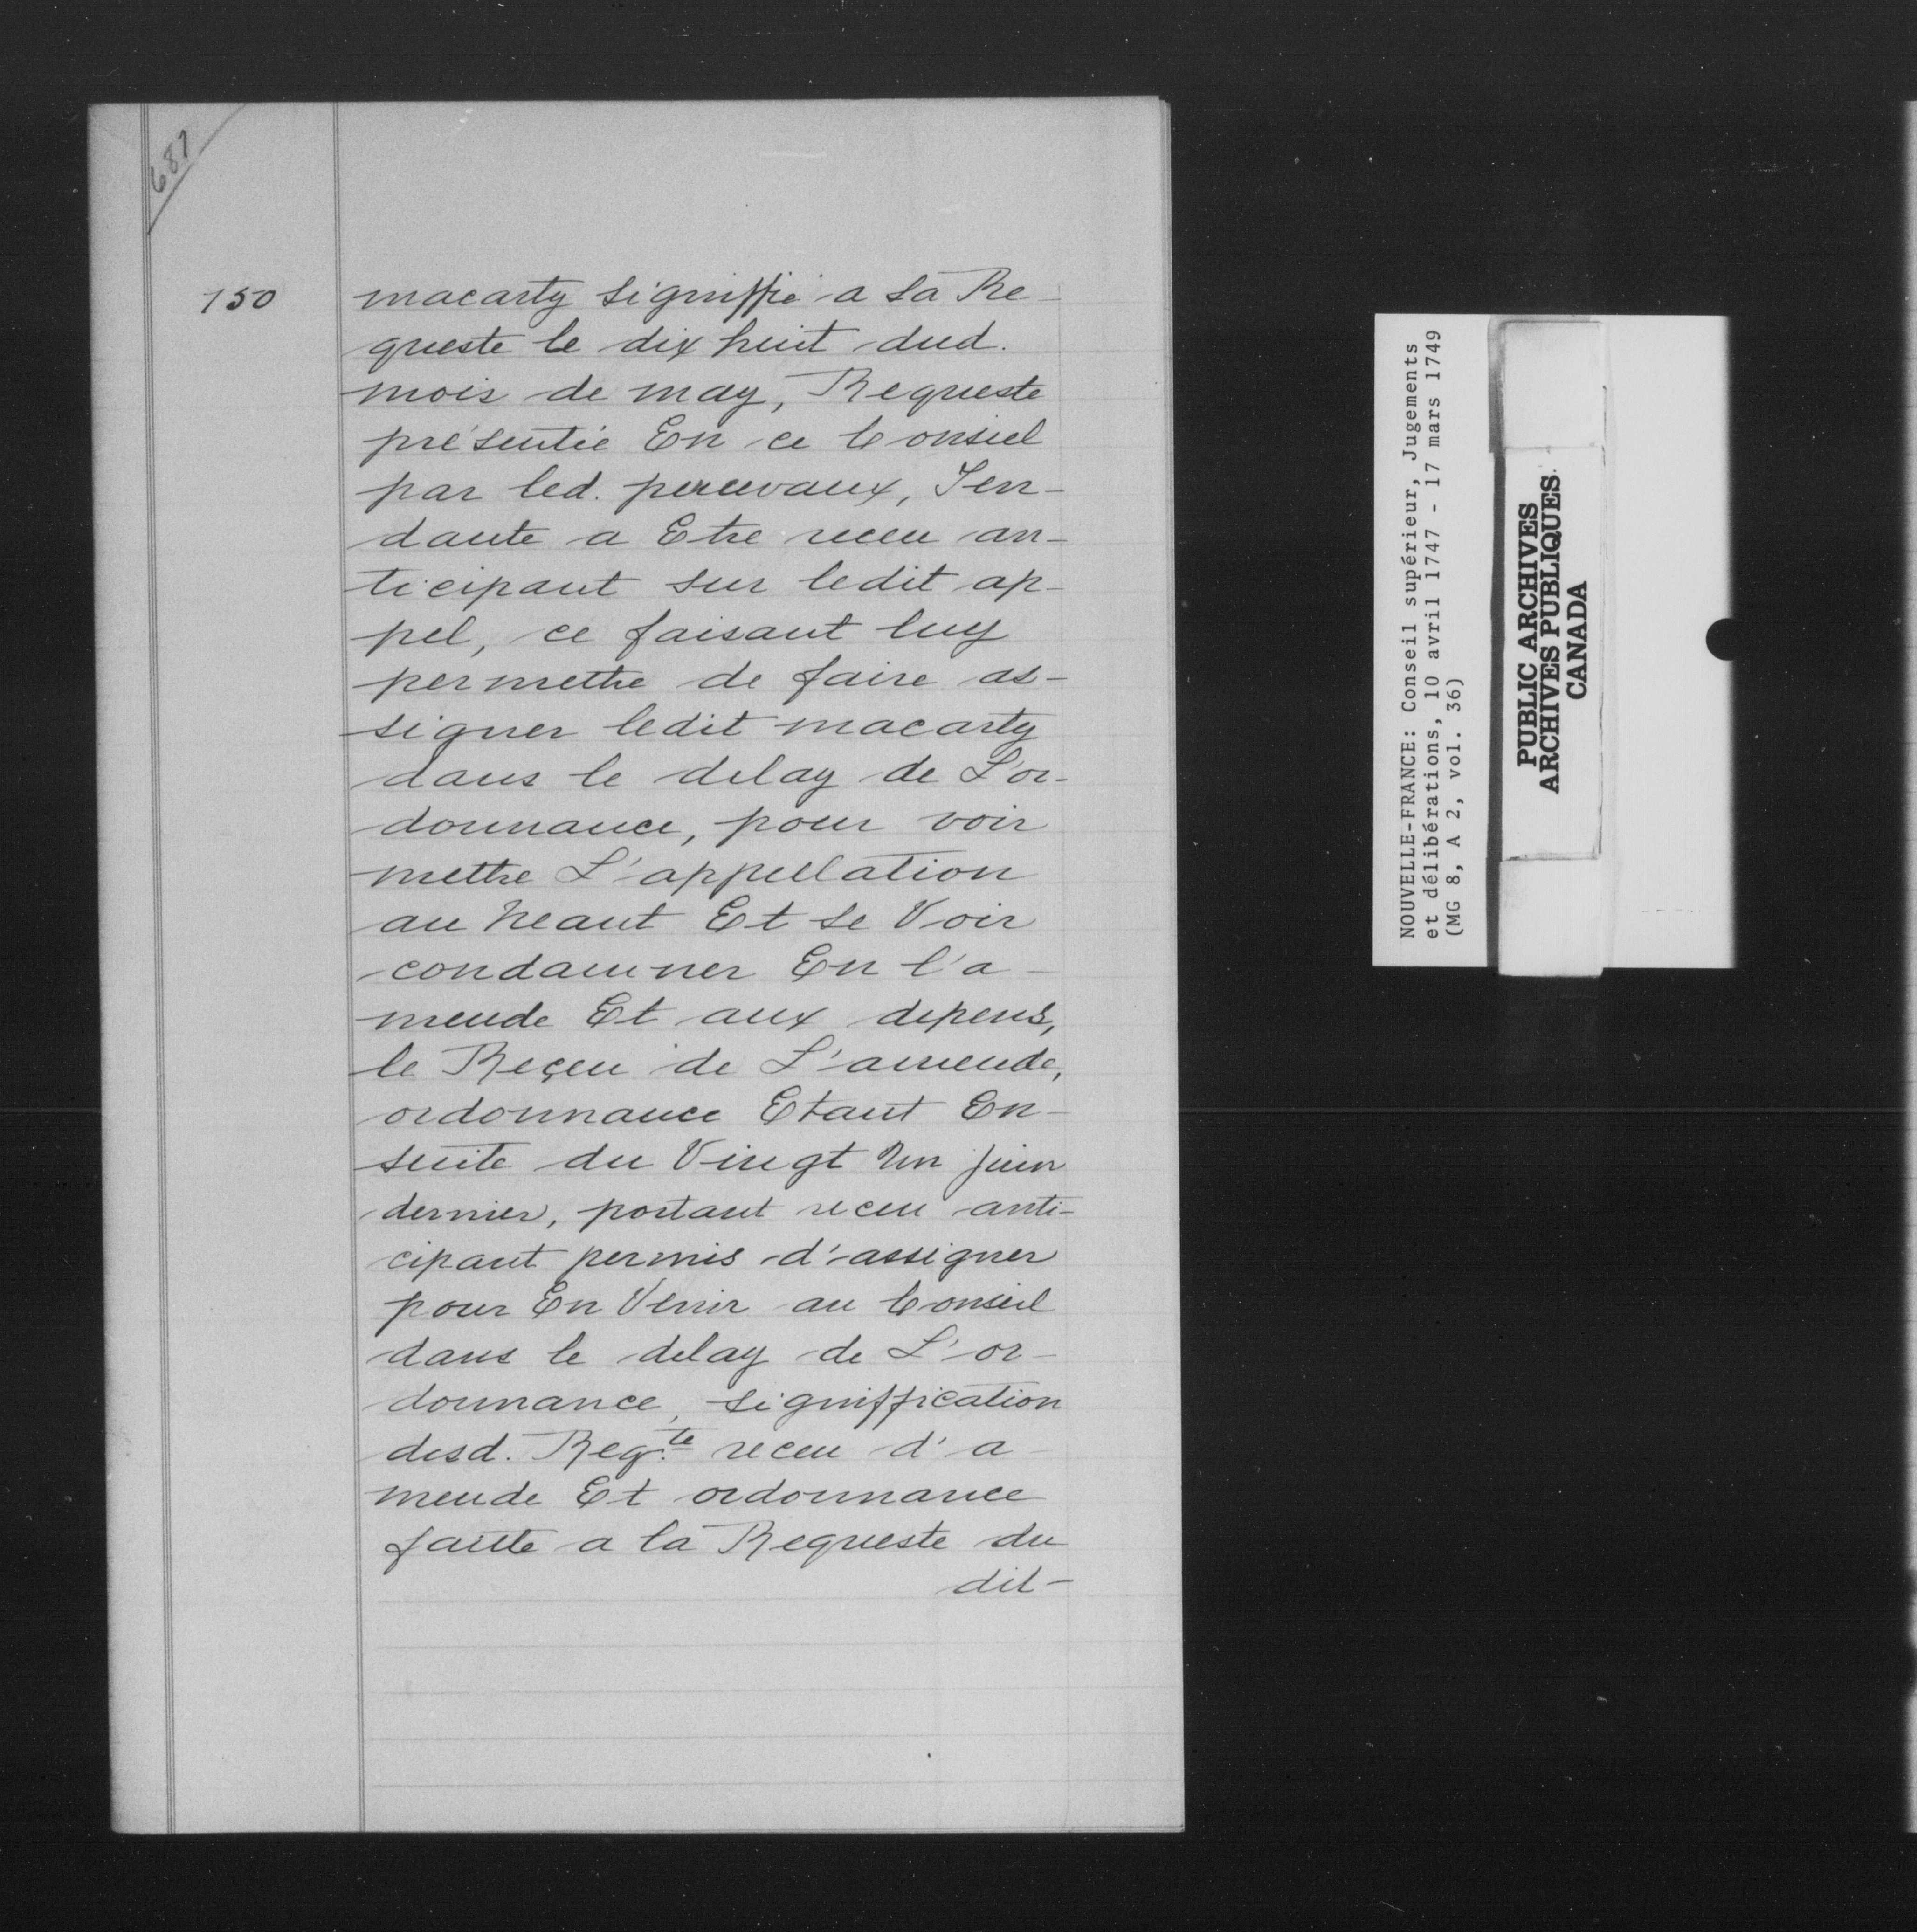 687
150
macarty signiffié a sa Re-
queste le dix huit dud.
mois de may, Requeste
présentée En ce Conseil
par led. percevaux, Ten-
dante a Etre receu an-
ticipant sur ledit ap-
pel, ce faisant luy
permettre de faire as-
signer ledit macarty
dans le delay de L'or-
donnance, pour voir
mettre L'appellation
au neant Et se Voir
condamner En l'a-
mende Et aux depens,
le Reçeu de L'amende,
ordonnance Etant En-
suite du Vingt Un juin
dernier, portant receu anti-
cipant permis d'assigner
pour En Venir au Conseil
dans le delay de L'or-
donnance, signiffication
desd. Reqte receu d'a-
mende Et ordonnance
faitte a la Requeste du
dit-
NOUVELLE-FRANCE: Conseil supérieur, Jugements
et délibérations, 10 avril 1747 - 17 mars 1749
(MG 8, A 2, vol. 36)
PUBLIC ARCHIVES
ARCHIVES PUBLIQUES
CANADA